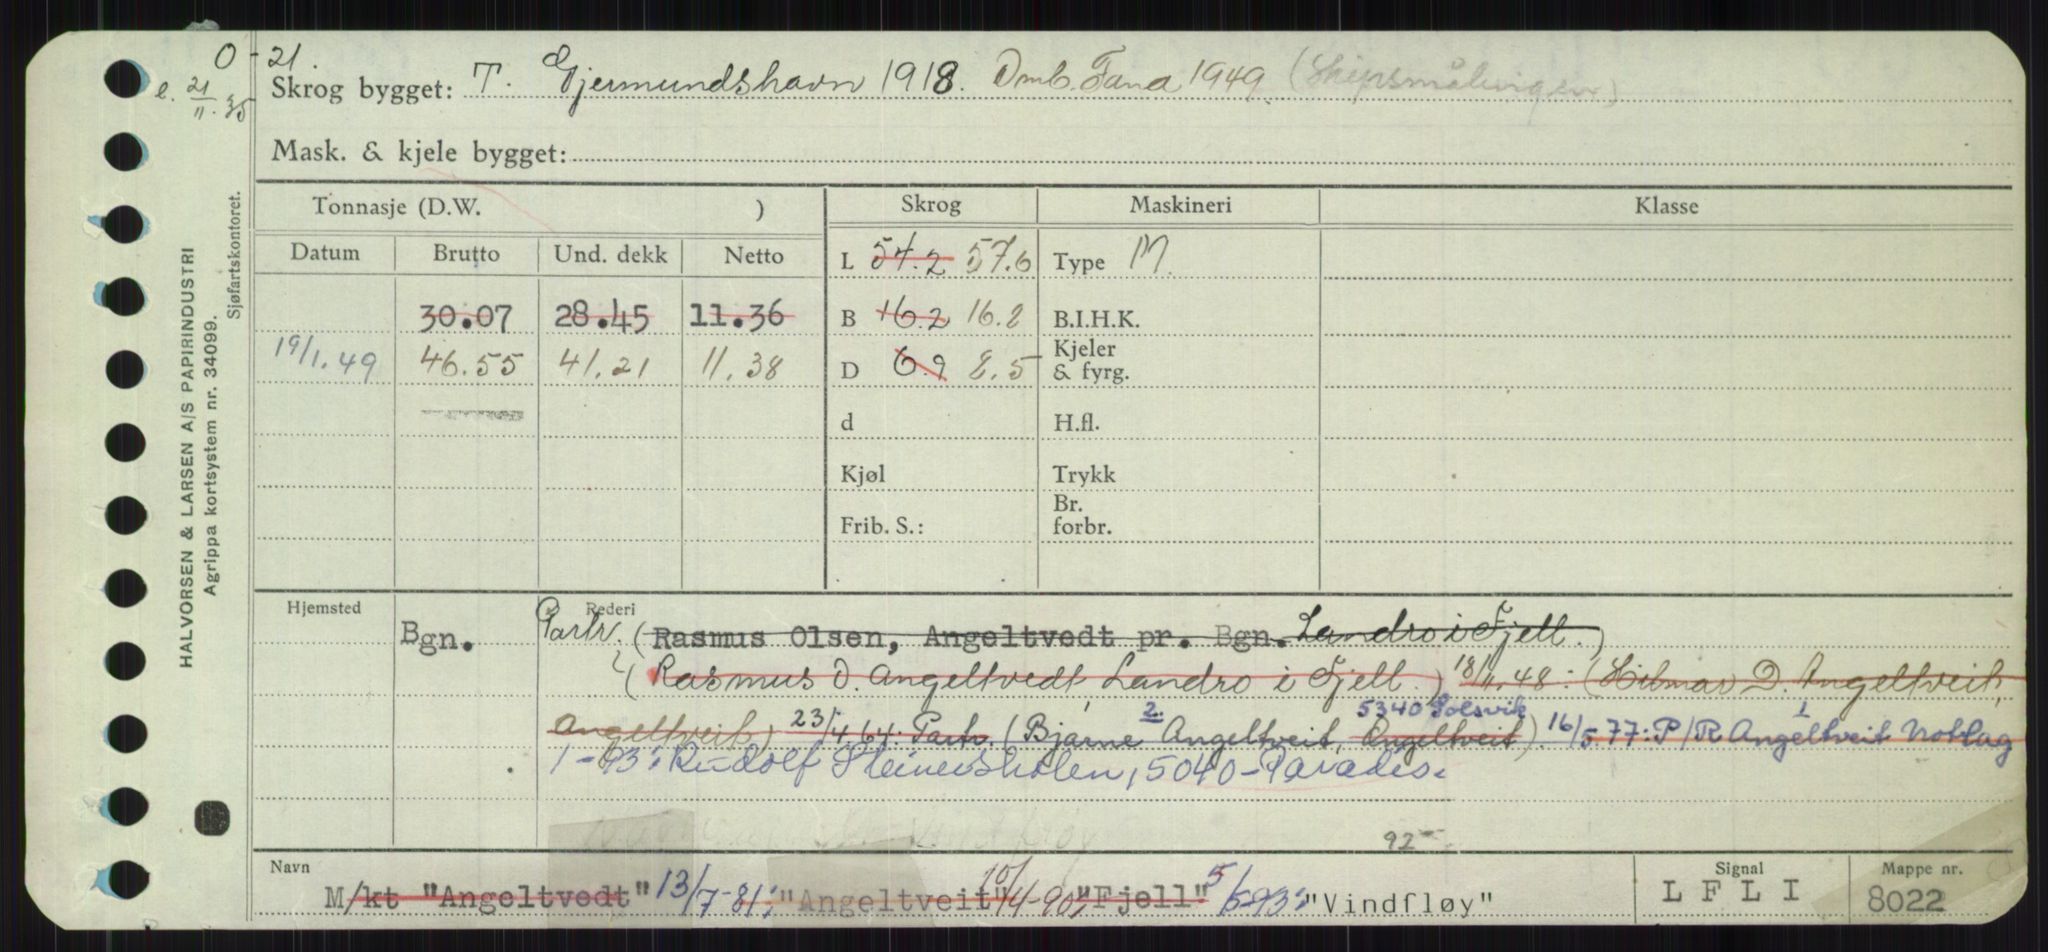 O-21.
e. 21/11.35
Skrog bygget: T. Gjermundshavn 1918. Omb. Fana 1949 (Skipsmålingen)
Mask. & kjele bygget:
HALVORSEN & LARSEN A/S PAPIRINDUSTRI
Agrippa kortsystem nr. 34099.
Sjøfartskontoret.
Tonnasje (D.W. ) Skrog Maskineri Klasse
Datum Brutto Und. dekk Netto L 54.2 57.6 Type M.
30.07 28.45 11.36 B 16.2 16.2 B.I.H.K.
19/1.49 46.55 41.21 11.38 D 6.9 8.5 Kjeler & fyrg.
d H.fl.
Kjøl Trykk
Frib. S.: Br. forbr.
Hjemsted Rederi
Bgn. Partr. (Rasmus Olsen, Angeltvedt pr. Bgn. Landro i Fjell.)
(Rasmus O. Angeltvedt, Landro i Fjell.) 18/11.48: (Hilmar D. Angeltveit,
2. 5340 Solsvik 1
Angeltveit) 23/4 64: Partr. (Bjarne Angeltveit, Angeltveit). 16/5.77: P/R Angeltveit Notlag
1-93: Rudolf Steinerskolen, 5040-Paradis.
92
Navn Signal Mappe nr.
M/kt "Angeltvedt" 13/7-81: "Angeltveit" 10/4-90: "Fjell" 5/6-93: "Vindfløy" L F L I 8022